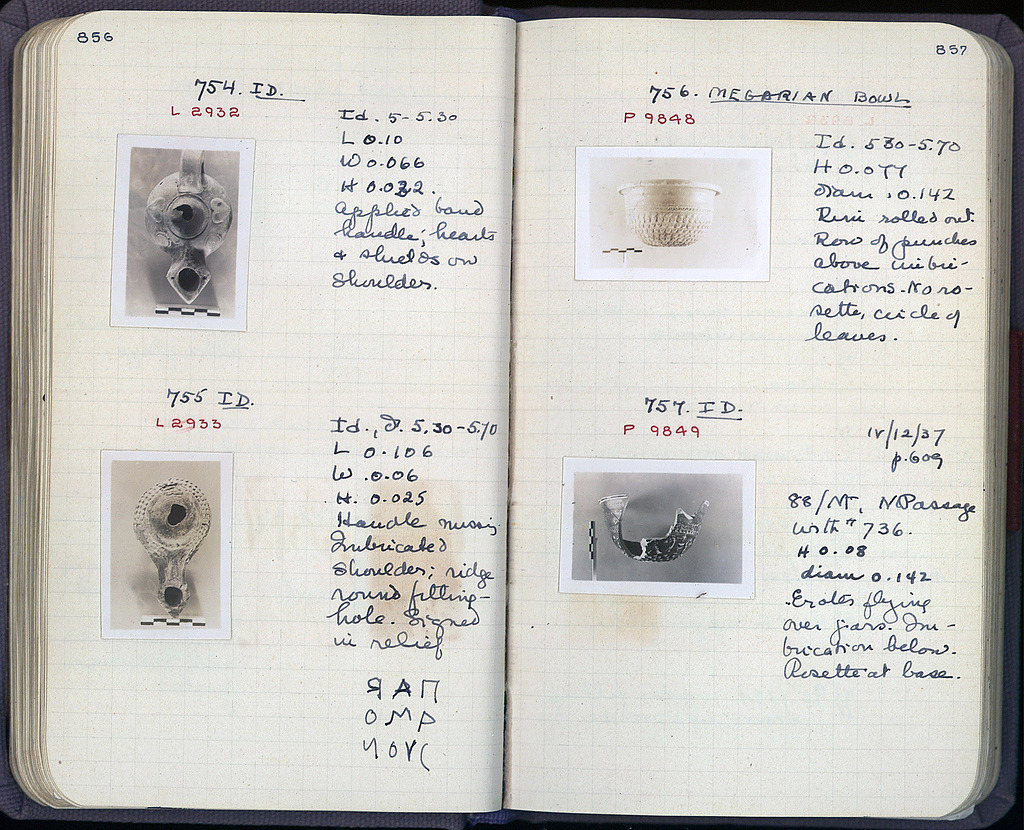 856
754. ID.
L 2932
Id. 5-5.30
L 0.10
W 0.066
H 0.032.
Applied band
handle; hearts
+ shields on
shoulder.
755 ID.
L 2933
Id., 5.30-5.70
L 0.106
W .0.06
H. 0.025
Handle missing
Imbricated
shoulder; ridge
round filling-
hole. Signed
in relief
ЯАП
ΟΜΡ
ИΟΥC
857
756. MEGARIAN BOWL
P 9848
Id. 530-5.70
H 0.077
diam. 0.142
Rim rolled out.
Row of punches
above imbri-
cations. No ro-
sette, circle of
leaves.
757. ID.
P 9849
IV/12/37
p.609
88/ME, N Passage
with # 736.
H 0.08
diam 0.142
Erotes flying
over jars. Im-
brication below.
Rosette at base.